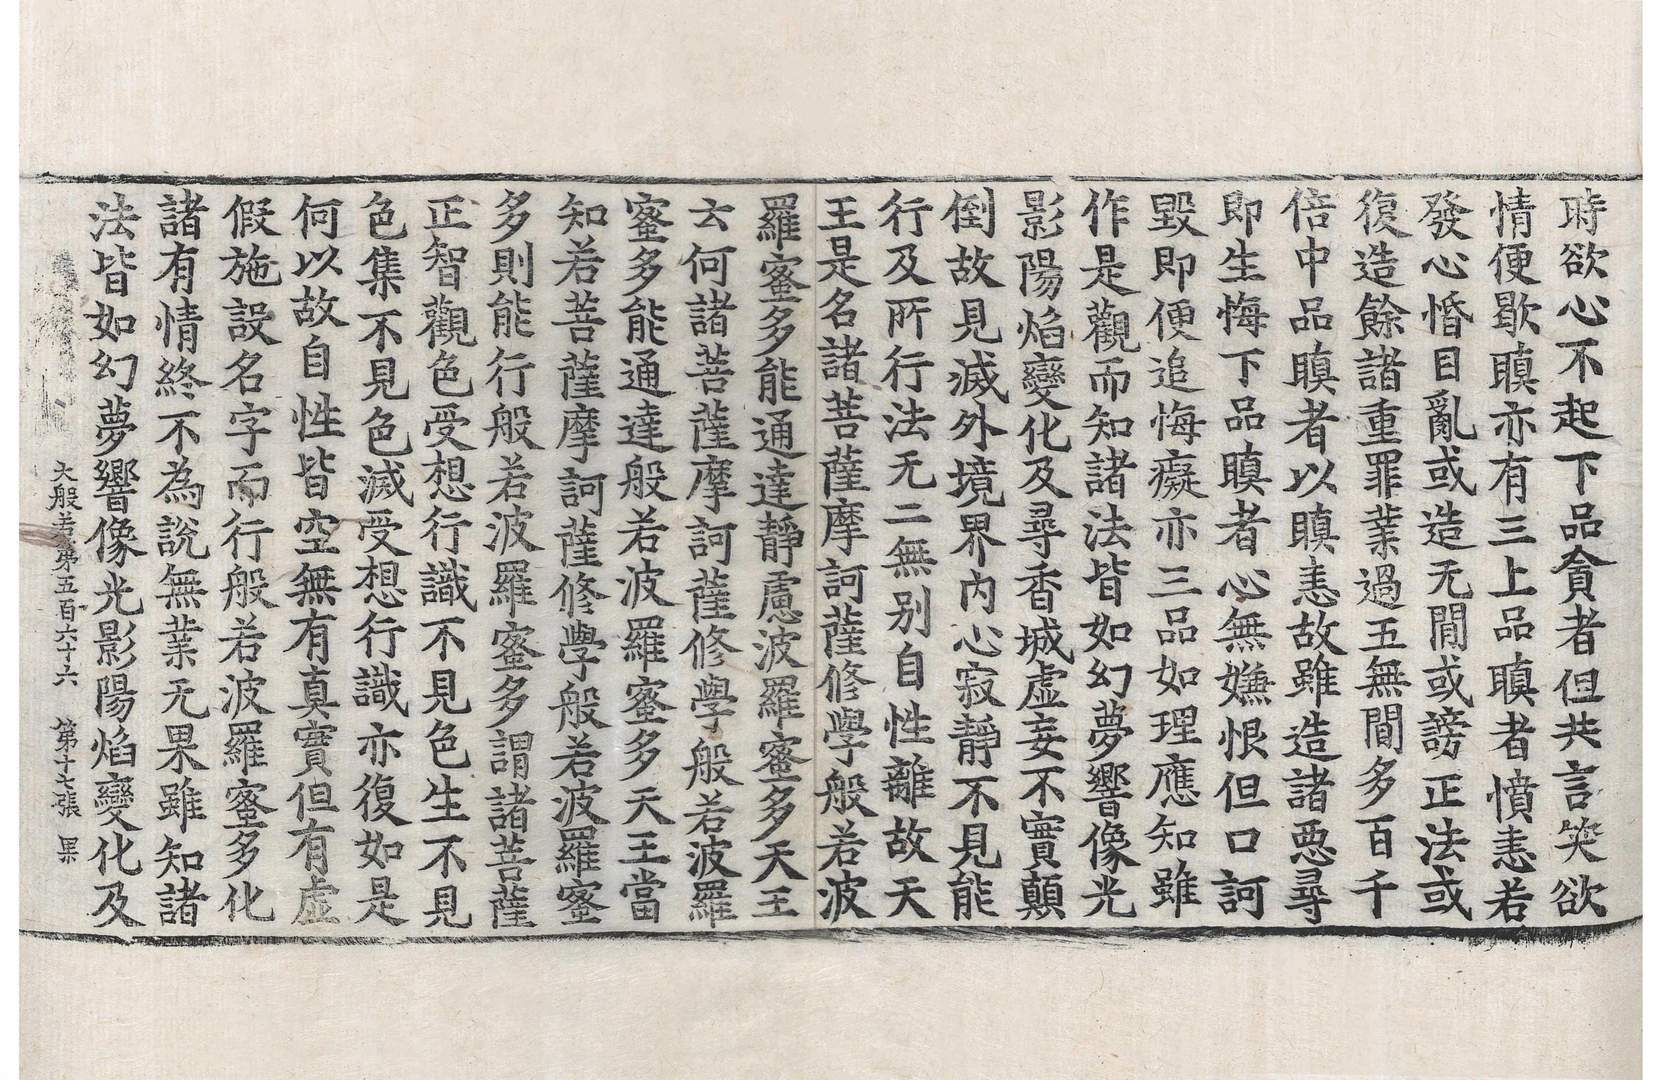 時欲心不起下品貪者但共言笑欲
情便歇瞋亦有三上品瞋者憤恚若
發心惛目亂或造无閒或謗正法或
復造餘諸重罪業過五無間多百千
倍中品瞋者以瞋恚故雖造諸惡尋
即生悔下品瞋者心無嫌恨但口訶
毀即便追悔癡亦三品如理應知雖
作是觀而知諸法皆如幻夢響像光
影陽焰變化及尋香城虛妄不實顛
倒故見滅外境界内心寂靜不見能
行及所行法无二無别自性離故天
王是名諸菩薩摩訶薩修學般若波
羅蜜多能通達靜慮波羅蜜多天王
云何諸菩薩摩訶薩修學般若波羅
蜜多能通達般若波羅蜜多天王當
知若菩薩摩訶薩修學般若波羅蜜
多則能行般若波羅蜜多謂諸菩薩
正智觀色受想行識不見色生不見
色集不見色滅受想行識亦復如是
何以故自性皆空無有真實但有虛
假施設名字而行般若波羅蜜多化
諸有情終不為說無業无果雖知諸
法皆如幻夢響像光影陽焰變化及
大般若第五百六十六 第十七張 果